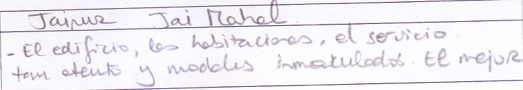 Jaipur Jai Mahal.
- El edificio, las habitaciones, el servicio
tan atento y modales inmaculados. El mejor